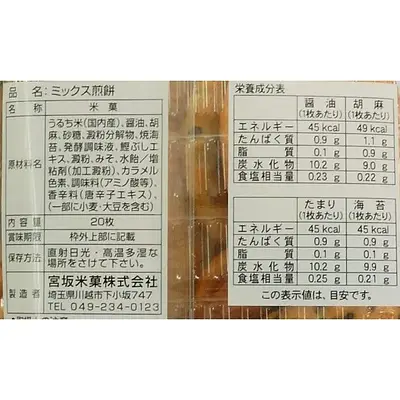 品名：ミックス煎餅
名称 米菓
原材料名 うるち米(国内産)、醤油、胡
麻、砂糖、澱粉分解物、焼海
苔、発酵調味液、鰹ぶしエ
キス、澱粉、みそ、水飴／増
粘剤(加工澱粉)、カラメル
色素、調味料(アミノ酸等)、
香辛料(唐辛子エキス)、
(一部に小麦・大豆を含む)
内容量 20枚
賞味期限 枠外上部に記載
保存方法 直射日光・高温多湿な
場所をさけて下さい。
製造者 宮坂米菓株式会社
埼玉県川越市下小坂747
TEL 049-234-0123
栄養成分表
醤油 胡麻
(1枚あたり) (1枚あたり)
エネルギー 45 kcal 49 kcal
たんぱく質 0.9 g 1.1 g
脂質 0.1 g 0.9 g
炭水化物 10.2 g 9.0 g
食塩相当量 0.23 g 0.22 g
たまり 海苔
(1枚あたり) (1枚あたり)
エネルギー 45 kcal 45 kcal
たんぱく質 0.9 g 0.9 g
脂質 0.1 g 0.1 g
炭水化物 10.2 g 9.9 g
食塩相当量 0.25 g 0.21 g
この表示値は、目安です。